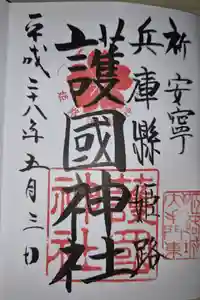 祈安寧
兵庫縣姫路
護國神社
平成二十八年五月三日
護國神社